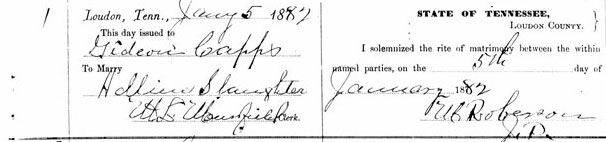 1
Loudon, Tenn., Jany 5 1882
This day issued to
Gideon Capps
To Marry
Adline Slaughter
Clerk.
STATE OF TENNESSEE,
LOUDON COUNTY.
I solemnized the rite of matrimony between the within
named parties, on the 5th day of
January 1882
Roberson
J.P.